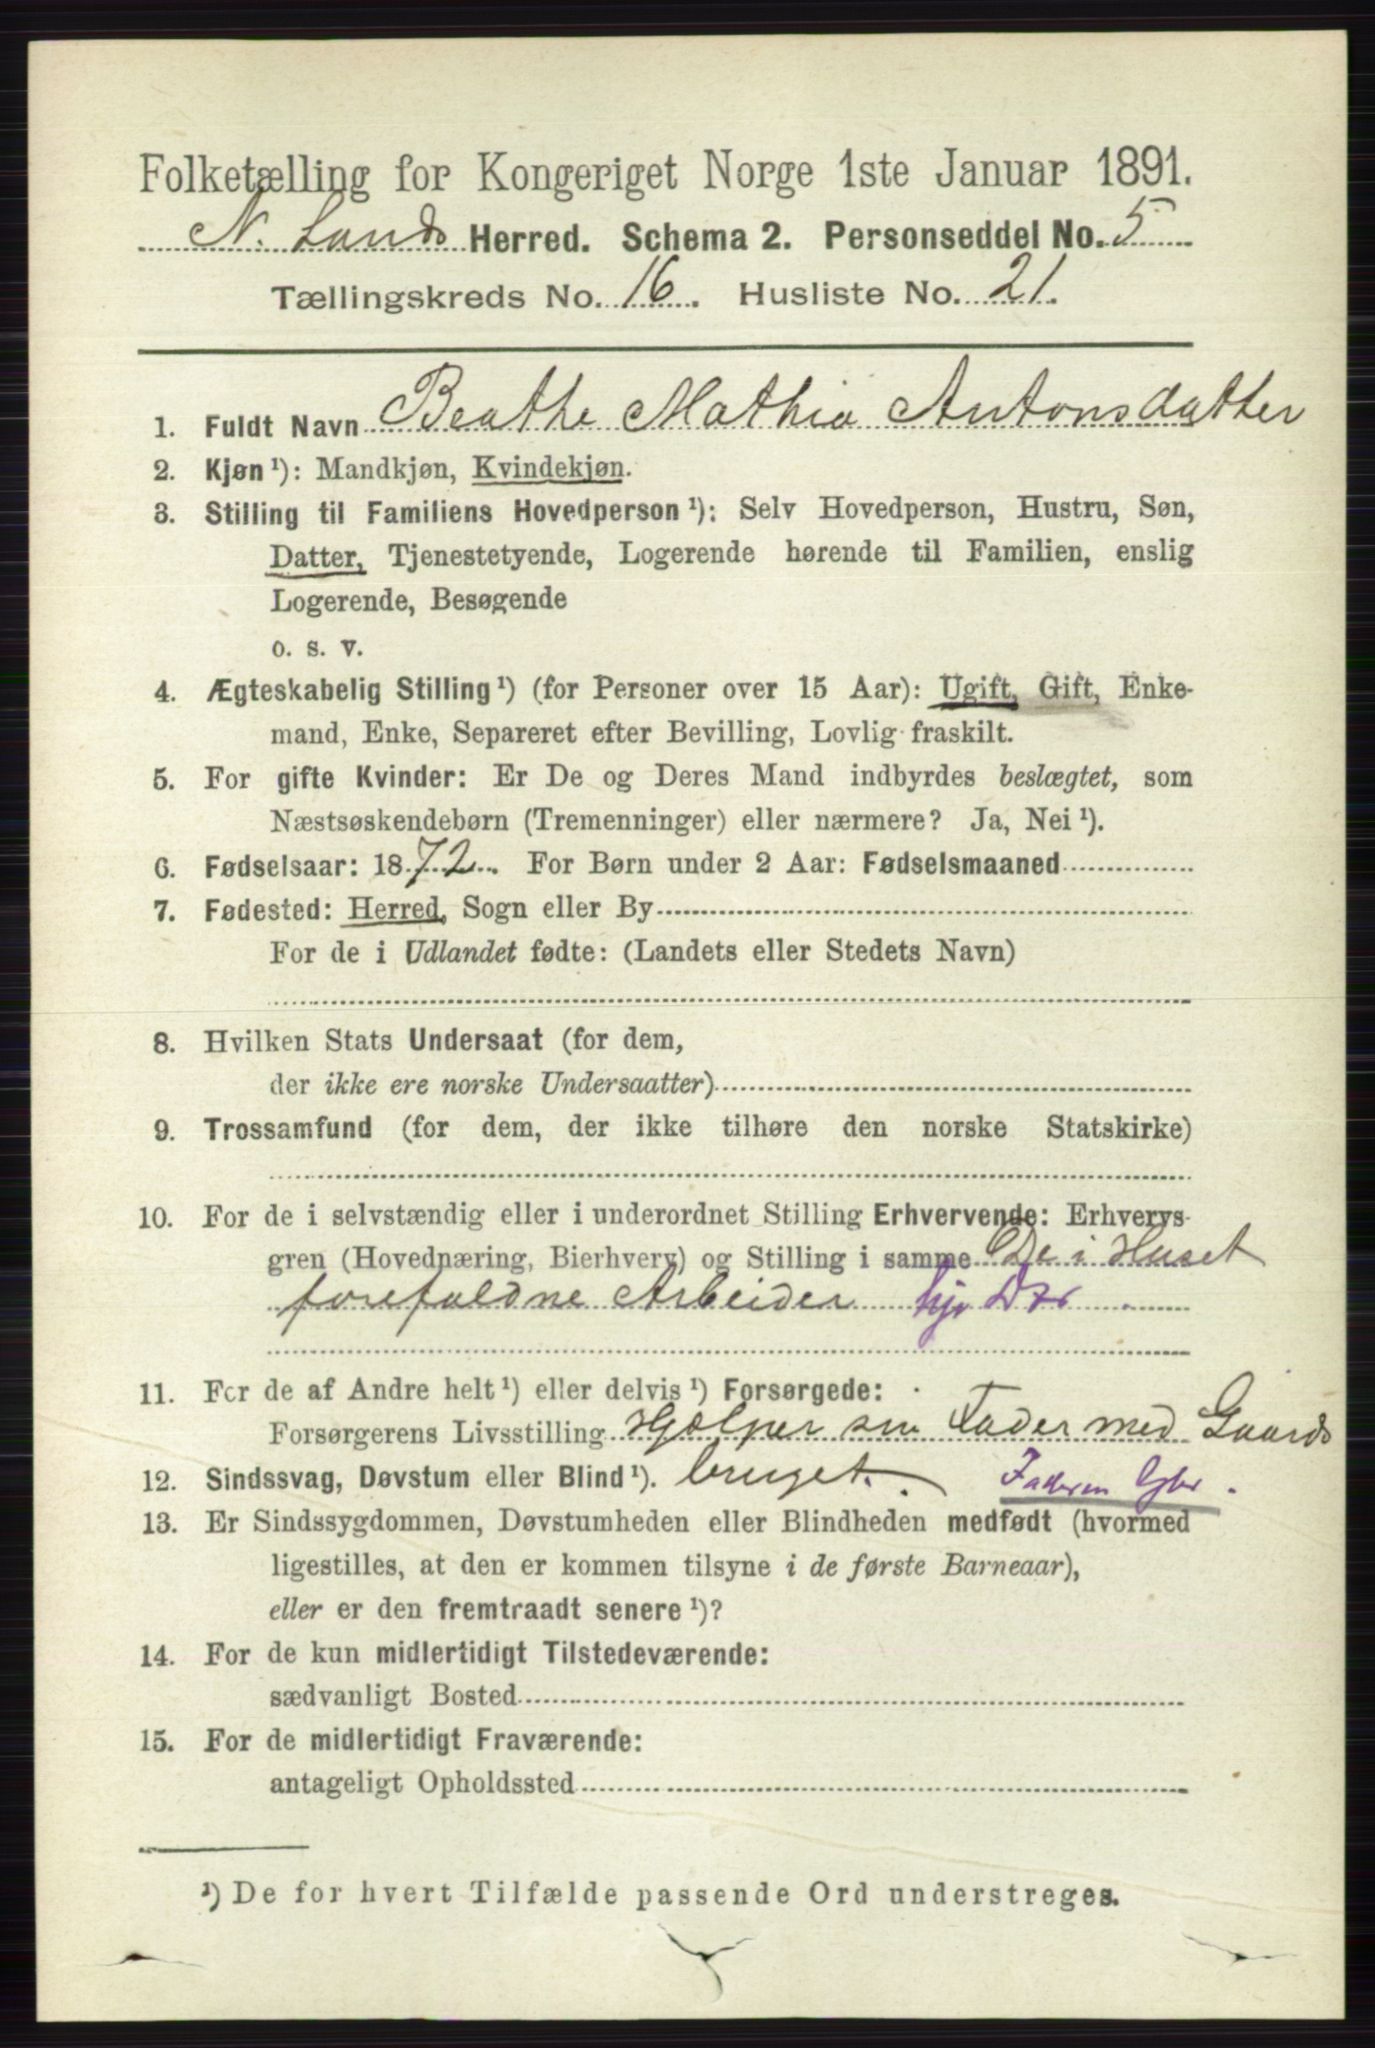 Folketælling for Kongeriget Norge 1ste Januar 1891.
N. Lands Herred. Schema 2. Personseddel No. 5
Tællingskreds No. 16. Husliste No. 21.
1. Fuldt Navn Beathe Mathia Antonsdatter
2. Kjøn ¹): Mandkjøn, Kvindekjøn.
3. Stilling til Familiens Hovedperson ¹): Selv Hovedperson, Hustru, Søn,
Datter, Tjenestetyende, Logerende hørende til Familien, enslig
Logerende, Besøgende
o. s. v.
4. Ægteskabelig Stilling ¹) (for Personer over 15 Aar): Ugift, Gift, Enke-
mand, Enke, Separeret efter Bevilling, Lovlig fraskilt.
5. For gifte Kvinder: Er De og Deres Mand indbyrdes beslægtet, som
Næstsøskendebørn (Tremenninger) eller nærmere? Ja, Nei ¹).
6. Fødselsaar: 1872. For Børn under 2 Aar: Fødselsmaaned
7. Fødested: Herred, Sogn eller By
For de i Udlandet fødte: (Landets eller Stedets Navn)
8. Hvilken Stats Undersaat (for dem,
der ikke ere norske Undersaatter)
9. Trossamfund (for dem, der ikke tilhøre den norske Statskirke)
10. For de i selvstændig eller i underordnet Stilling Erhvervende: Erhvervs-
gren (Hovednæring, Bierhverv) og Stilling i samme De i Huset
forefaldne Arbeider
11. For de af Andre helt ¹) eller delvis ¹) Forsørgede:
Forsørgerens Livsstilling Hjælper sin Fader med Gaards
12. Sindssvag, Døvstum eller Blind ¹). bruget. Faderen Gbr.
13. Er Sindssygdommen, Døvstumheden eller Blindheden medfødt (hvormed
ligestilles, at den er kommen tilsyne i de første Barneaar),
eller er den fremtraadt senere ¹)?
14. For de kun midlertidigt Tilstedeværende:
sædvanligt Bosted
15. For de midlertidigt Fraværende:
antageligt Opholdssted
¹) De for hvert Tilfælde passende Ord understreges.